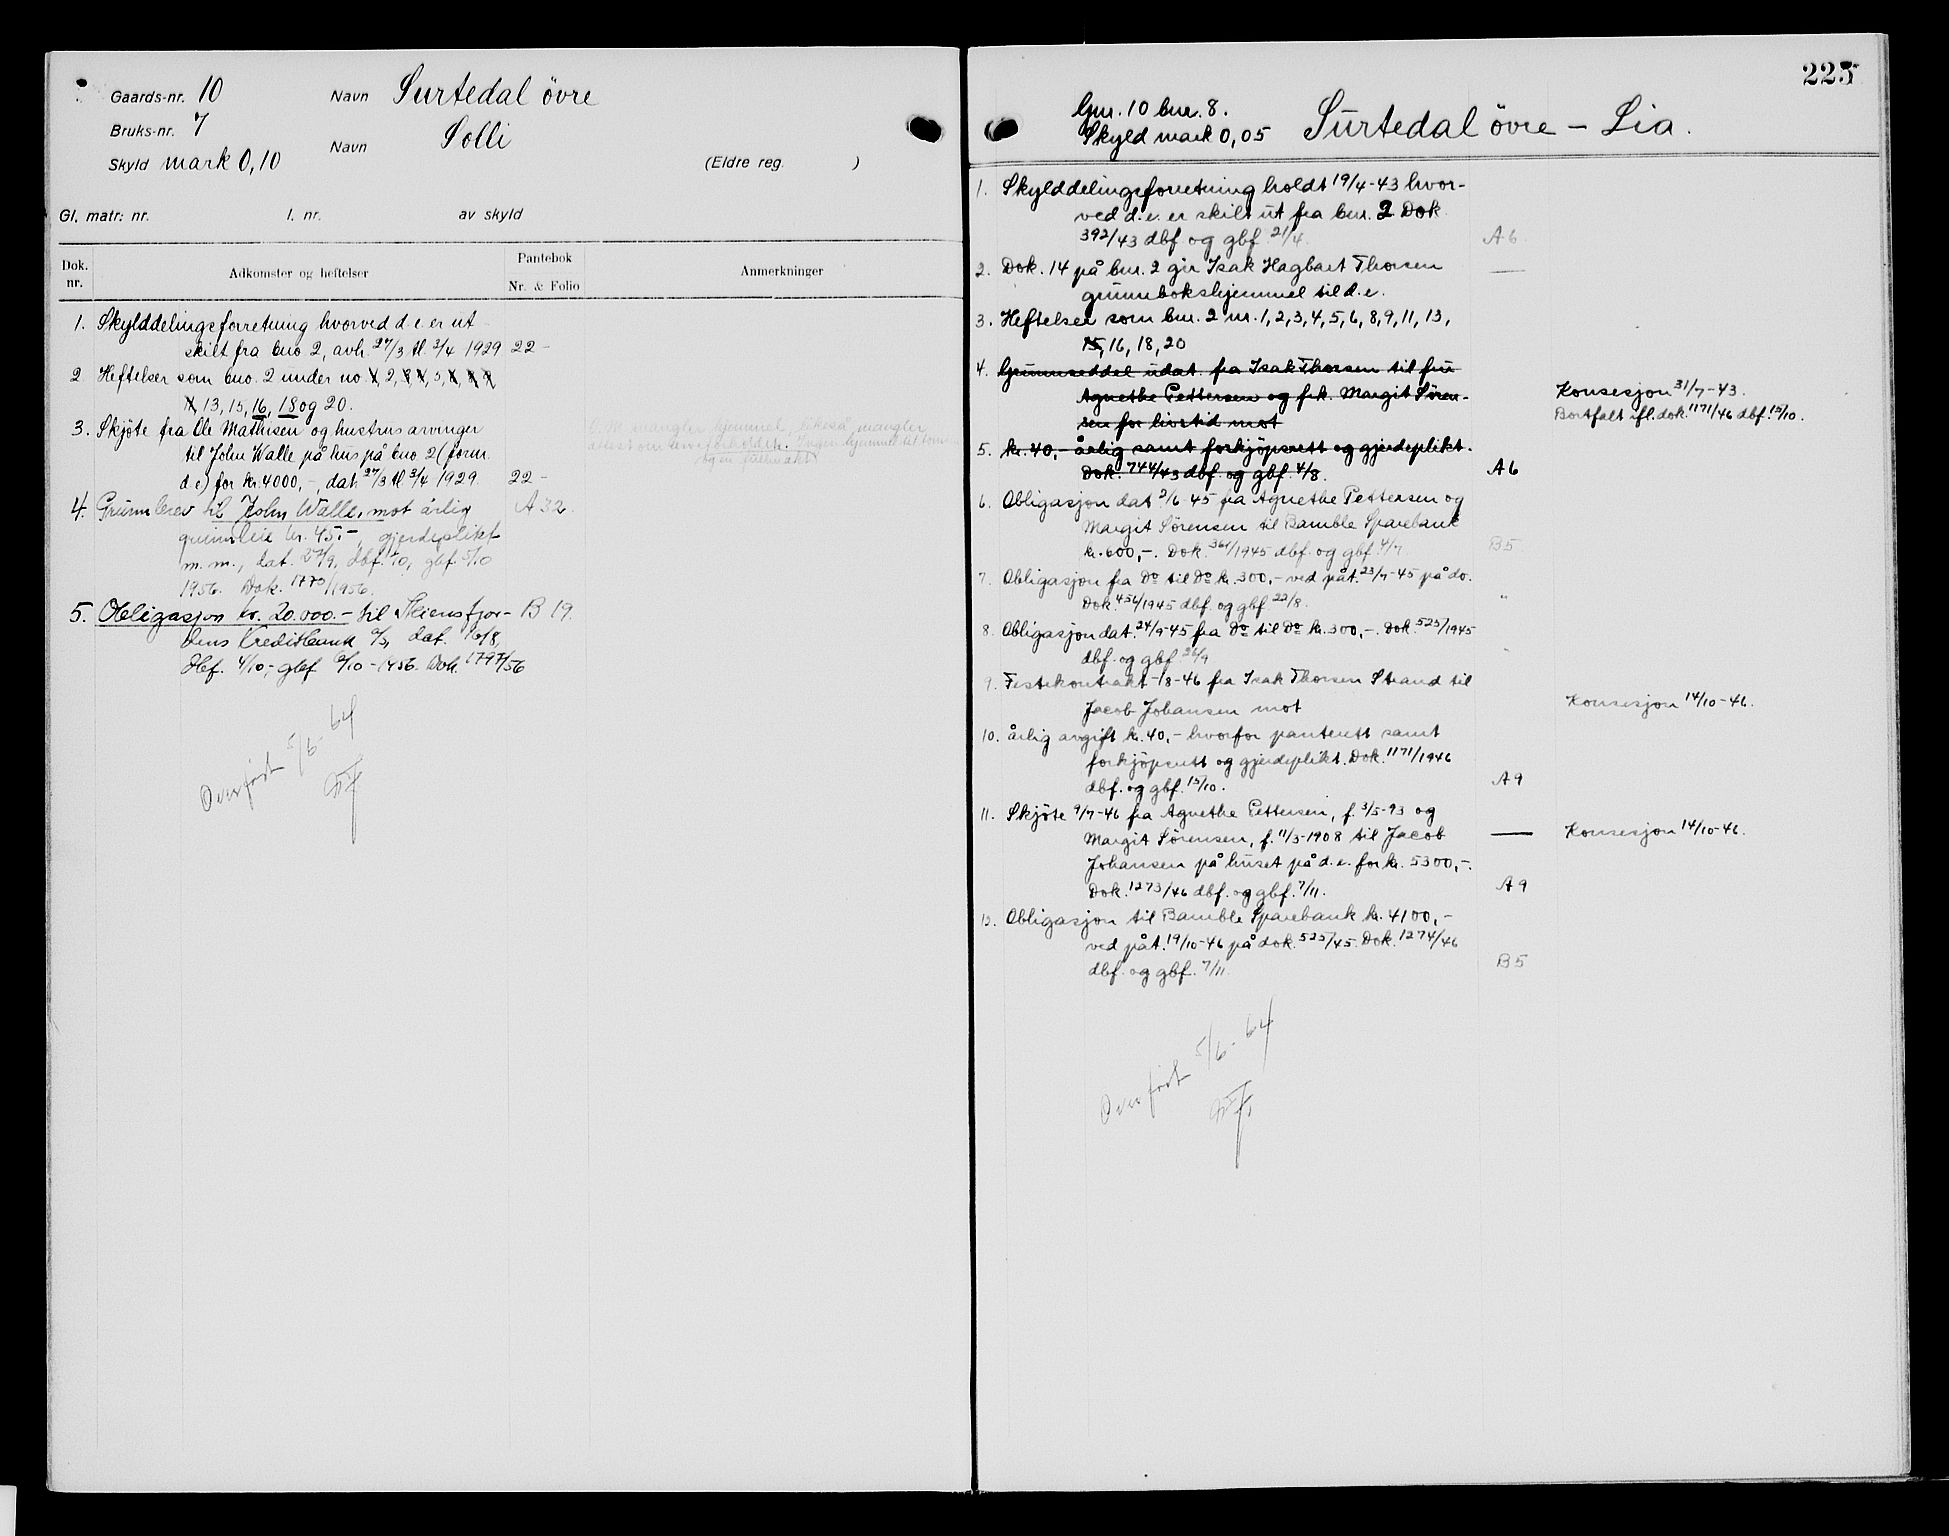 Gaards-nr. 10 Navn Surtedal övre
Bruks-nr. 7 Navn Solli
Skyld mark 0,10 (Eldre reg. )
Gl. matr: nr. l. nr. av skyld
Dok. nr. Adkomster og heftelser Pantebok Nr. & Folio Anmerkninger
1. Skylddelingsforretning hvorved d.e. er ut
skilt fra bno 2, avh. 27/3 tl. 3/4 1929 22 -
2 Heftelser som bno. 2 under no. 2, 5,
13, 15, 16, 18 og 20.
3. Skjöte fra Ole Mathisen og hustrus arvinger
til John Walle på hus på bno 2 (forrn.
d.e) for kr. 4000,-, dat. 27/3 tl 3/4 1929. 22 -
O. M. mangler hjemmel, likeså mangler
4. Grunnbrev til John Walle, mot årlig A 32.
grunnleie kr. 45.-, gjerdeplikt
m.m., dat. 27/9, dbf. /10, gbf. 5/10
1956. Dok. 1770/1956.
5. Obligasjon kr. 20.000.- til Skiensfjor- B 19.
dens Kreditbank a/s, dat. 16/8,
dbf. 4/10,- gbf 9/10 - 1956. Dok. 1797/56
Overført 5/6 - 64
225
Gnr. 10 bnr. 8.
Skyld mark 0,05 Surtedal övre - Lia.
1. Skylddelingsforretning holdt 19/4-43 hvor-
ved d.e. er skilt ut fra bnr. 2 Dok
392/43 dbf og gbf. 21/4. A 6.
2. Dok. 14 på bnr. 2 gir Isak Hagbart Thorsen —
grunnbokshjemmel til d.e.
3. Heftelser som bnr. 2 nr. 1, 2, 3, 4, 5, 6, 8, 9, 11, 13,
15, 16, 18, 20
4. Grunnseddel udat. fra Isak Thorsen til fru
Agnethe Pettersen og frk. Margit Sören- Konsesjon 31/7-43.
sen for livstid mot Bortfalt ifl. dok. 1171/46 dbf. 15/10.
5. kr. 40,- årlig samt forkjöpsrett og gjerdeplikt.
Dok. 744/43 dbf. og gbf. 4/8. A 6
6. Obligasjon dat 2/6 45 fra Agnethe Pettersen og
Margit Sörensen til Bamble Sparebank
kr. 600,-. Dok. 361/1945 dbf. og gbf 4/7. B 5
7. Obligasjon fra Do til Do kr. 300,- ved påt. 23/7-45 på do.
Dok. 456/1945 dbf. og gbf 22/8. "
8. Obligasjon dat. 24/9-45 fra Do til Do kr. 300,-. Dok. 525/1945
dbf. og gbf 26/9 "
9. Festekontrakt -/8-46 fra Isak Thorsen Strand til
Jacob Johansen mot Konsesjon 14/10-46.
10. årlig avgift kr. 40,- hvorfor panterett samt
forkjöpsrett og gjerdeplikt. Dok. 1171/1946
dbf. og gbf. 15/10. A 9
11. Skjöte 9/7-46 fra Agnethe Pettersen, f. 3/5-93 og
Margit Sörensen, f. 11/3-1908 til Jacob — Konsesjon 14/10-46.
Johansen på huset på d.e. for kr. 5300,-.
Dok. 1273/46 dbf. og gbf. 7/11. A 9
12. Obligasjon til Bamble Sparebank kr. 4100,-
ved påt. 19/10-46 på dok. 525/45. Dok. 1274/46
dbf. og gbf. 7/11. B 5
Overført 5/6 - 64